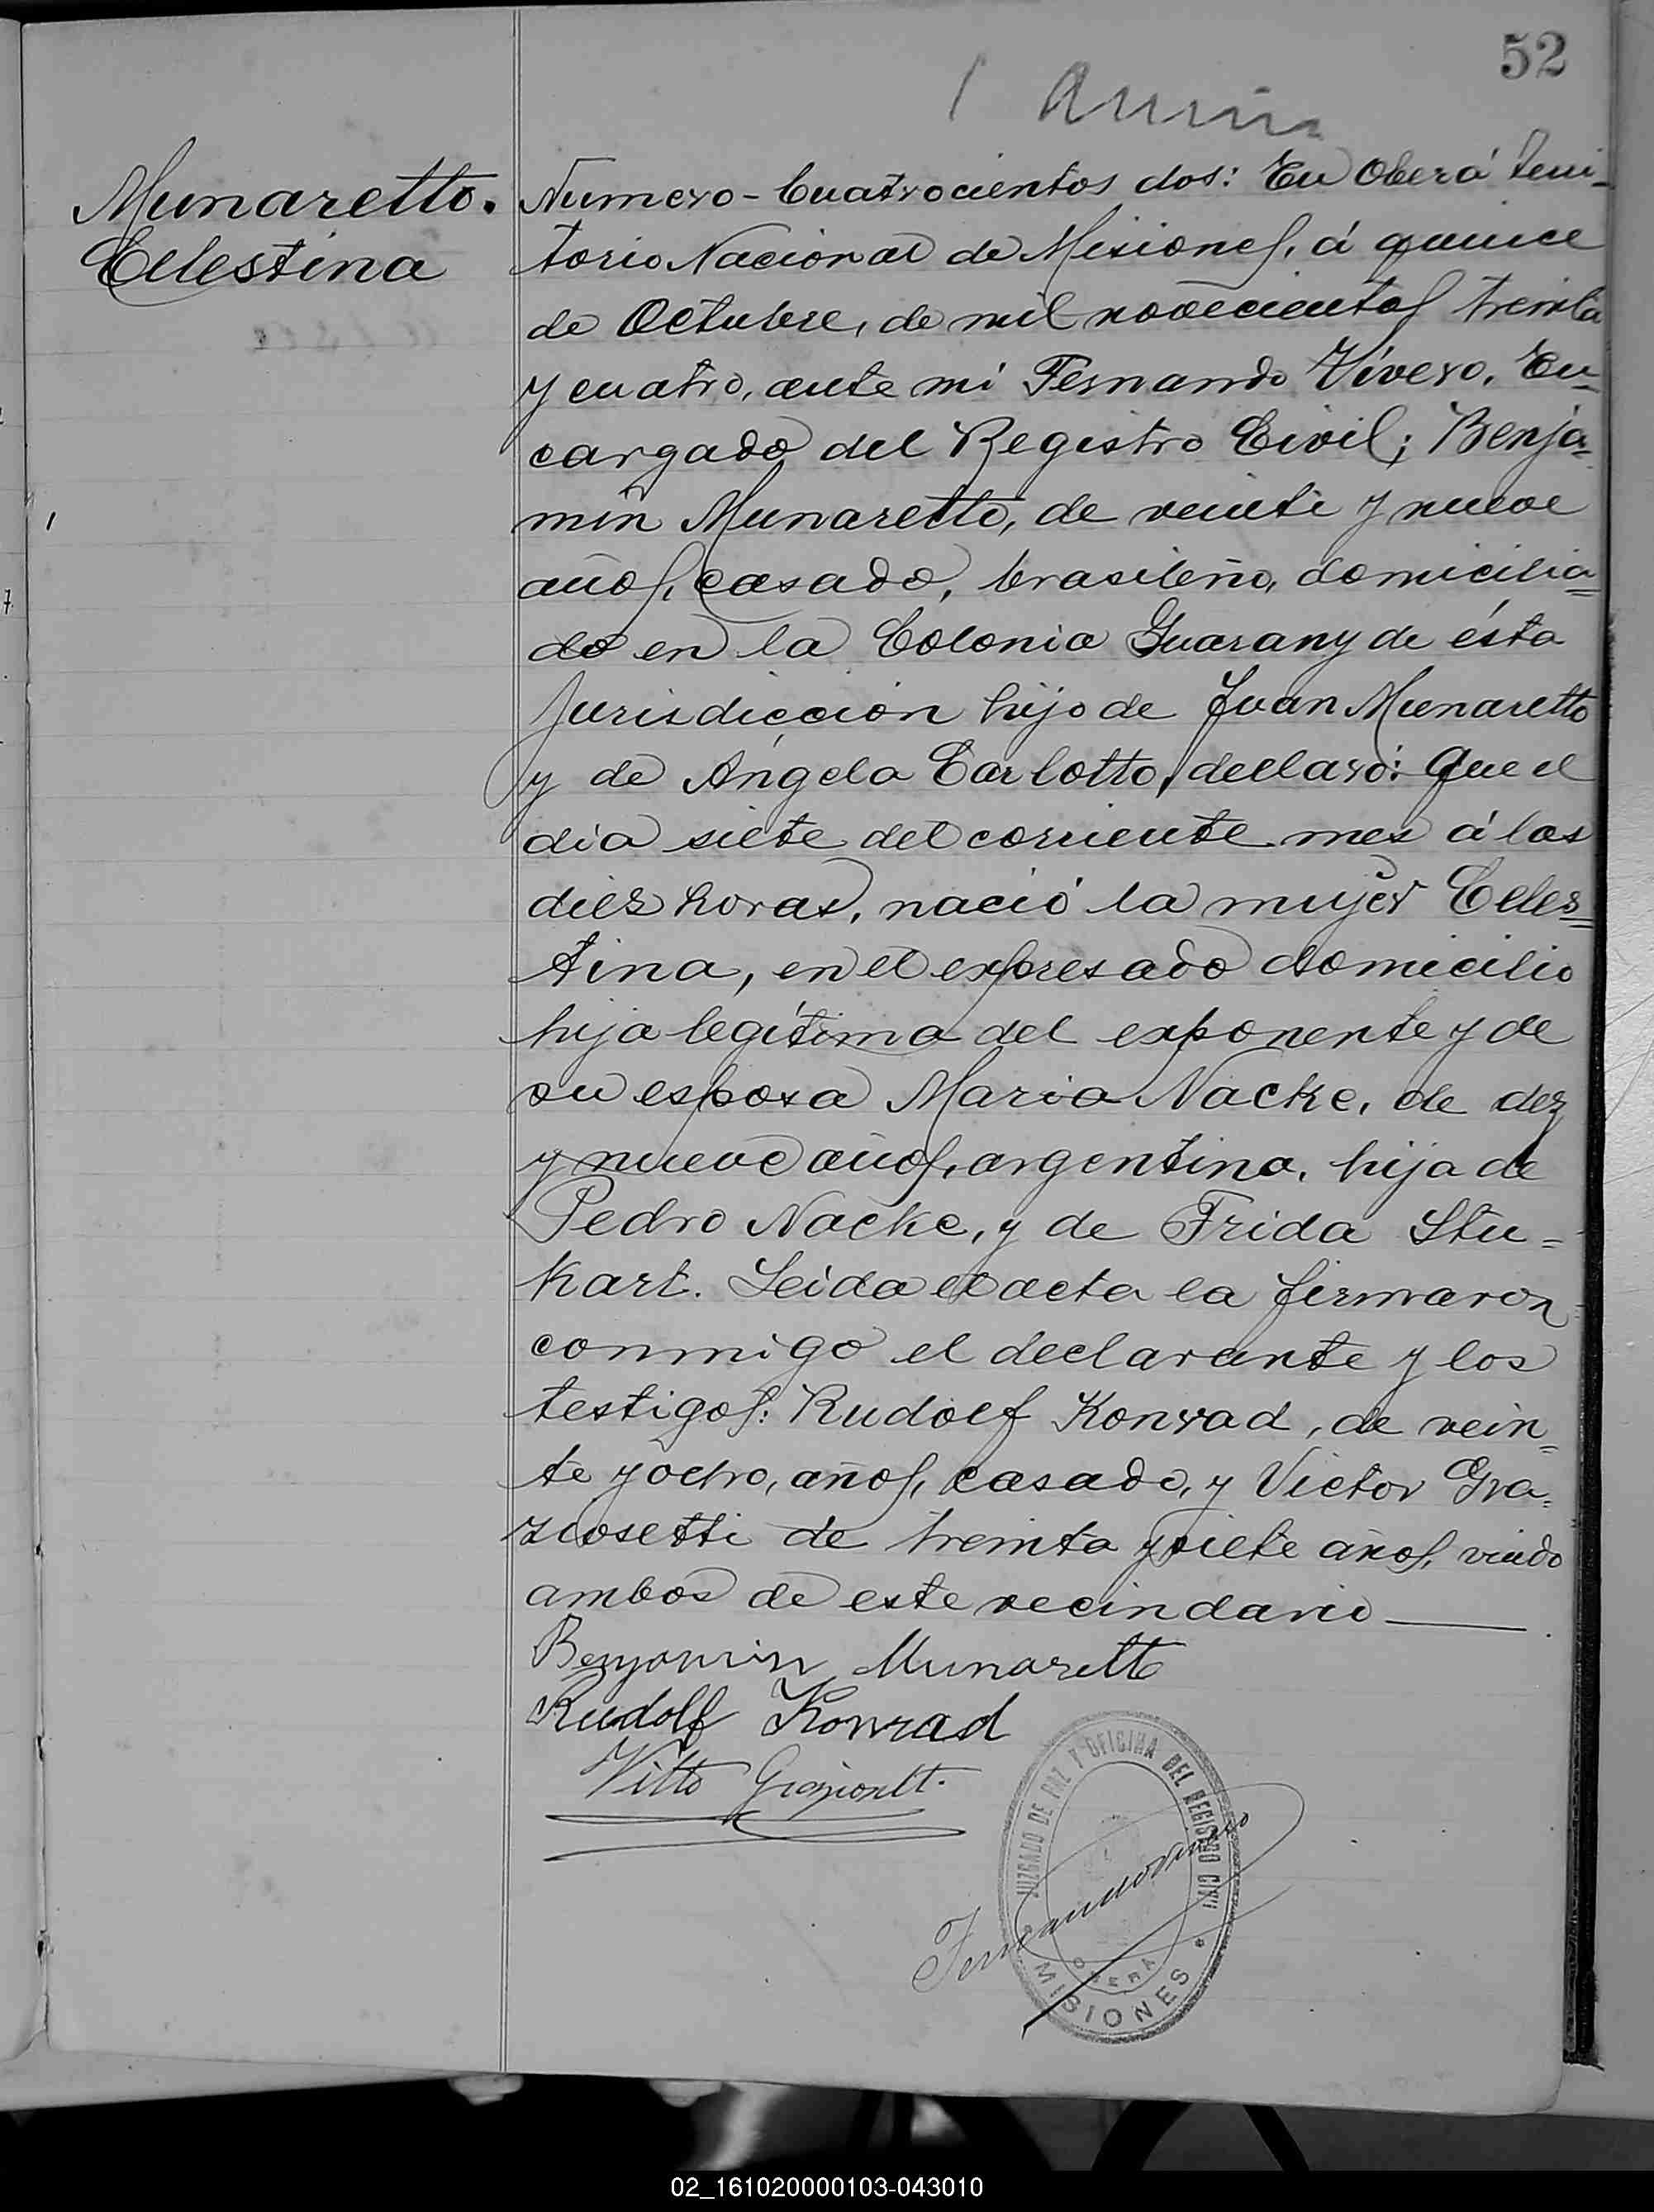 52
Munaretto.
Celestina
Numero - Cuatrocientos dos: En Oberá Terri-
torio Nacional de Misiones, á quince
de Octubre, de mil novecientos treinta
y cuatro, ante mi Fernando Vívero, En-
cargado del Registro Civil; Benja=
min Munaretto, de veinti y nueve
años, casado, brasileño, domicilia=
do en la Colonia Guarany de ésta
Jurisdiccion hijo de Juan Munaretto
y de Angela Carlotto, declaró: Que el
dia siete del corriente mes á las
diez horas, nació la mujer Celes=
tina, en el expresado domicilio
hija legítima del exponente y de
su esposa Maria Nacke, de diez
y nueve años, argentina, hija de
Pedro Nacke, y de Frida Stu=
kart. Leida el acta la firmaron
conmigo el declarante y los
testigos: Rudolf Konrad, de vein=
te y ocho, años, casado, y Victor Gra=
ziosetti de treinta y siete años, viudo
ambos de este vecindario
Benjamin Munaretto
Rudolf Konrad
JUZGADO DE PAZ Y OFICINA DEL REGISTRO CIVIL
OBERÁ
MISIONES
02_161020000103-043010